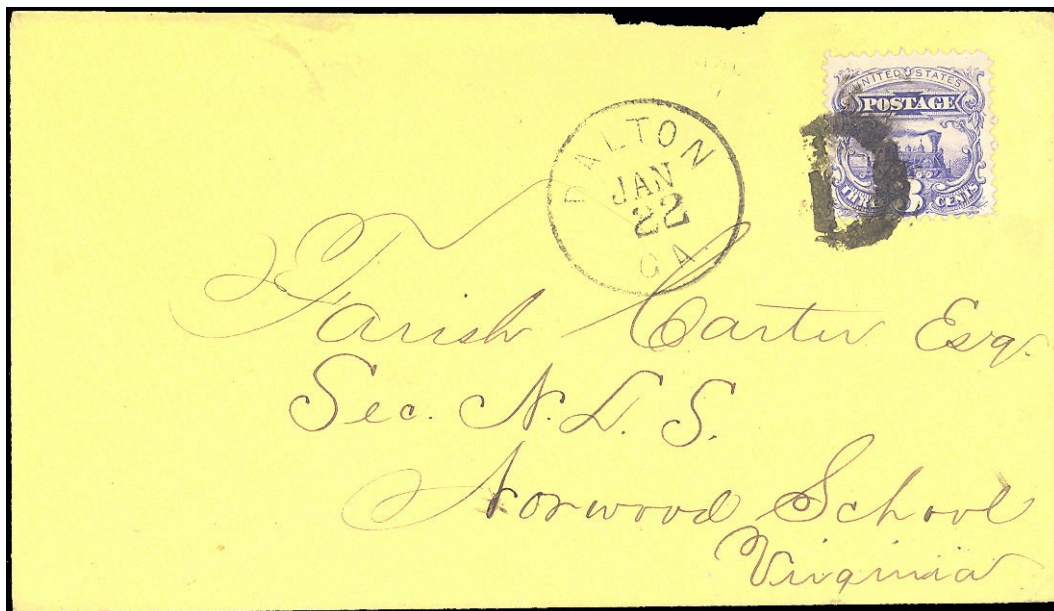 UNITED STATES
POSTAGE
THREE 3 CENTS
D
DALTON
JAN
22
GA
Farish Carter Esq.
Sec. N. L. S.
Norwood School
Virginia